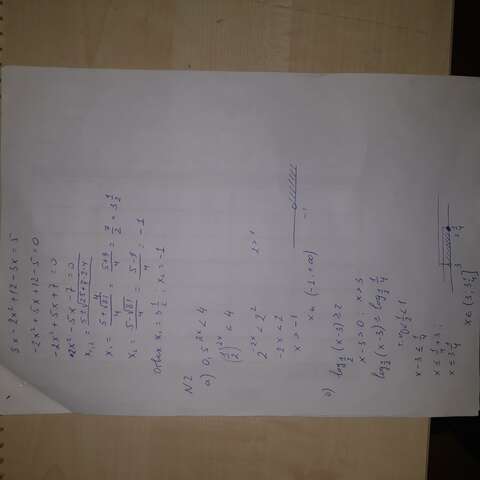 8x - 2x² + 12 - 3x = 5
-2x² + 5x + 12 - 5 = 0
-2x² + 5x + 7 = 0
2x² - 5x - 7 = 0
x₁,₂ = (5 ± √(25 + 7·2·4))/4
x₁ = (5 + √81)/4 = (5 + 9)/4 = 7/2 = 3 1/2
x₂ = (5 - √81)/4 = (5 - 9)/4 = -1
Ответ x₁ = 3 1/2 ; x₂ = -1
N2
а) 0,5^(2x) < 4
(1/2)^(2x) < 4
2^(-2x) < 2² 2 > 1
-2x < 2
x > -1
-1
x ∈ (-1; +∞)
б) log_(1/2) (x - 3) ≥ 2
x - 3 > 0 ; x > 3
log_(1/2) (x - 3) ≥ log_(1/2) 1/4
0 < 1/2 < 1
x - 3 ≤ 1/4
x ≤ 1/4 + 3 ;
x ≤ 3 1/4
3 3 1/4
x ∈ (3; 3 1/4]